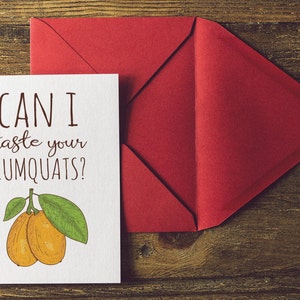 CAN I
taste your
KUMQUATS?